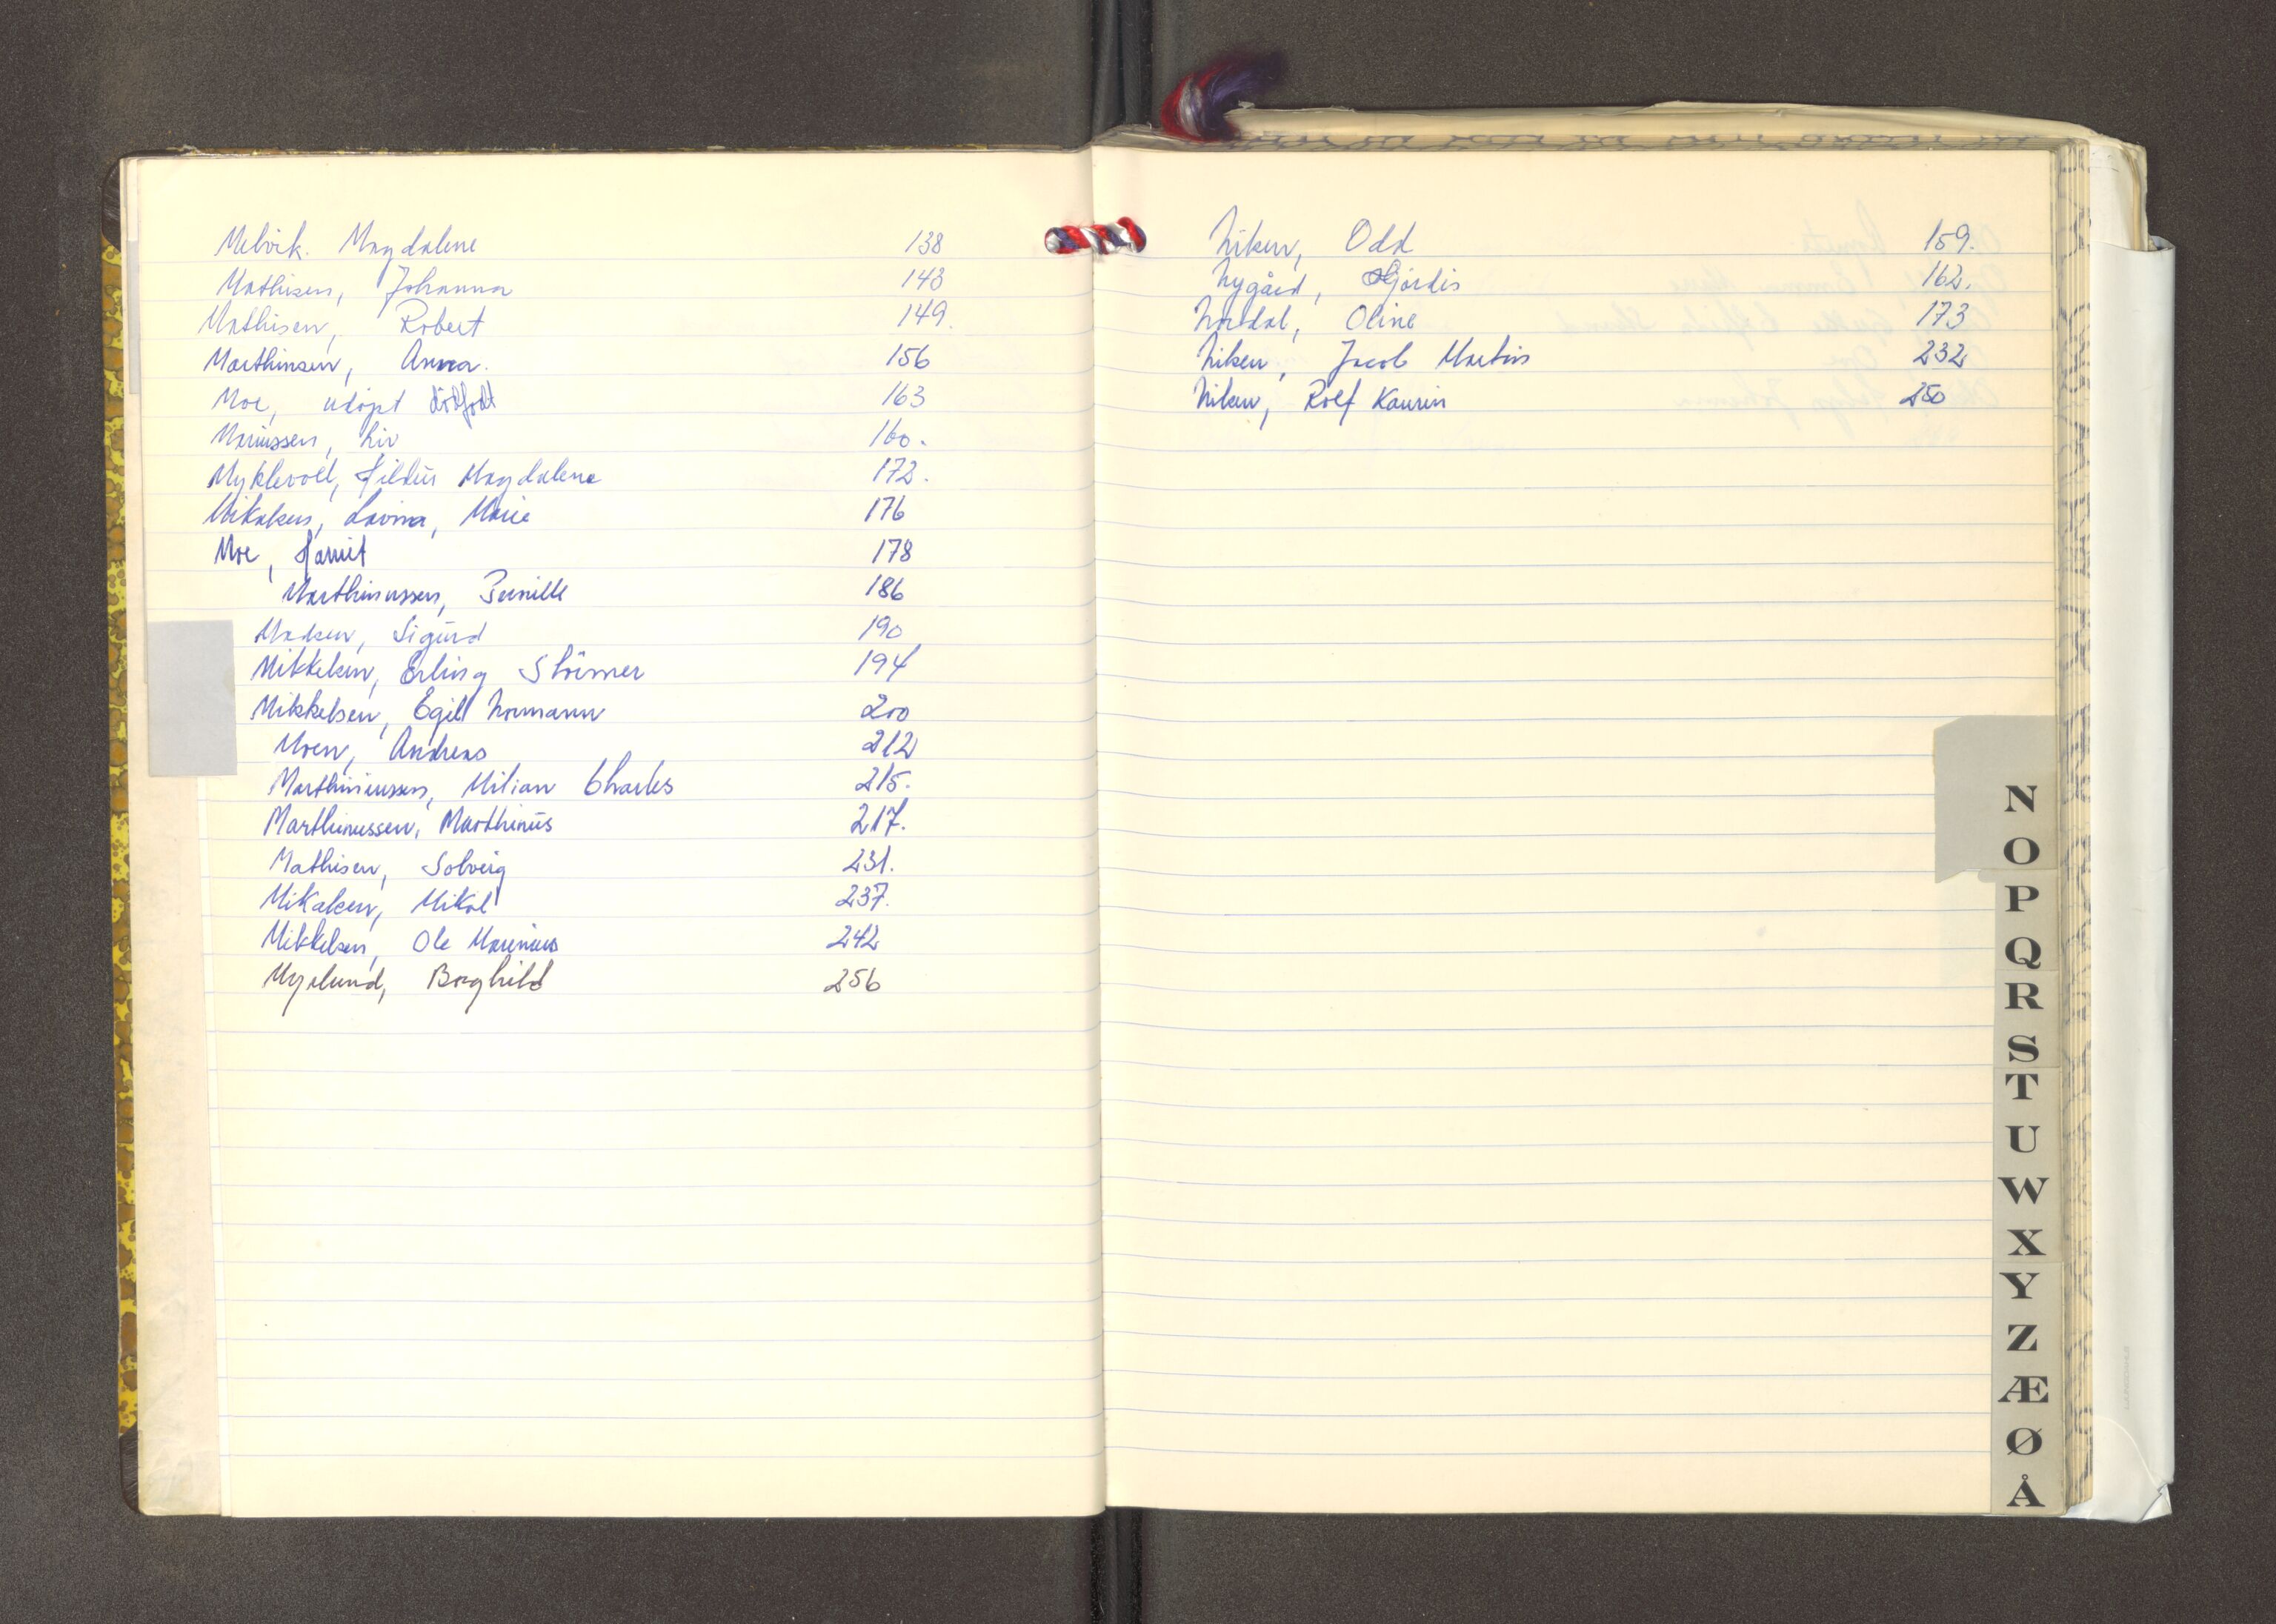 Melvik. Magdalene 138
Mathisen, Johanna 143
Mathisen, Robert 149.
Marthinsen, Anna. 156
Moe, udöpt dödfödt 163
Mariussen, Liv 160.
Myklevoll, Hildur Magdalene 172.
Mikalsen, Lavina, Marie 176
Moe, Harriet 178
Marthinussen, Pernille 186
Madsen, Sigurd 190
Mikkelsen, Erling Störmer 194
Mikkelsen, Egill Normann 200
Moen, Andreas 212
Marthiniussen, Milian Charles 215.
Marthinussen, Marthinus 217.
Mathisen, Solveig 231.
Mikalsen, Mikal 237.
Mikkelsen, Ole Marinius 242
Myrlund, Borghild 256
Niken, Odd 159.
Nygård, Hjördis 162.
Nordal, Oline 173
Niken, Jacob Martin 232
Niken, Rolf Kaurin 250
N
O
P
Q
R
S
T
U
W
X
Y
Z
Æ
Ø
Å